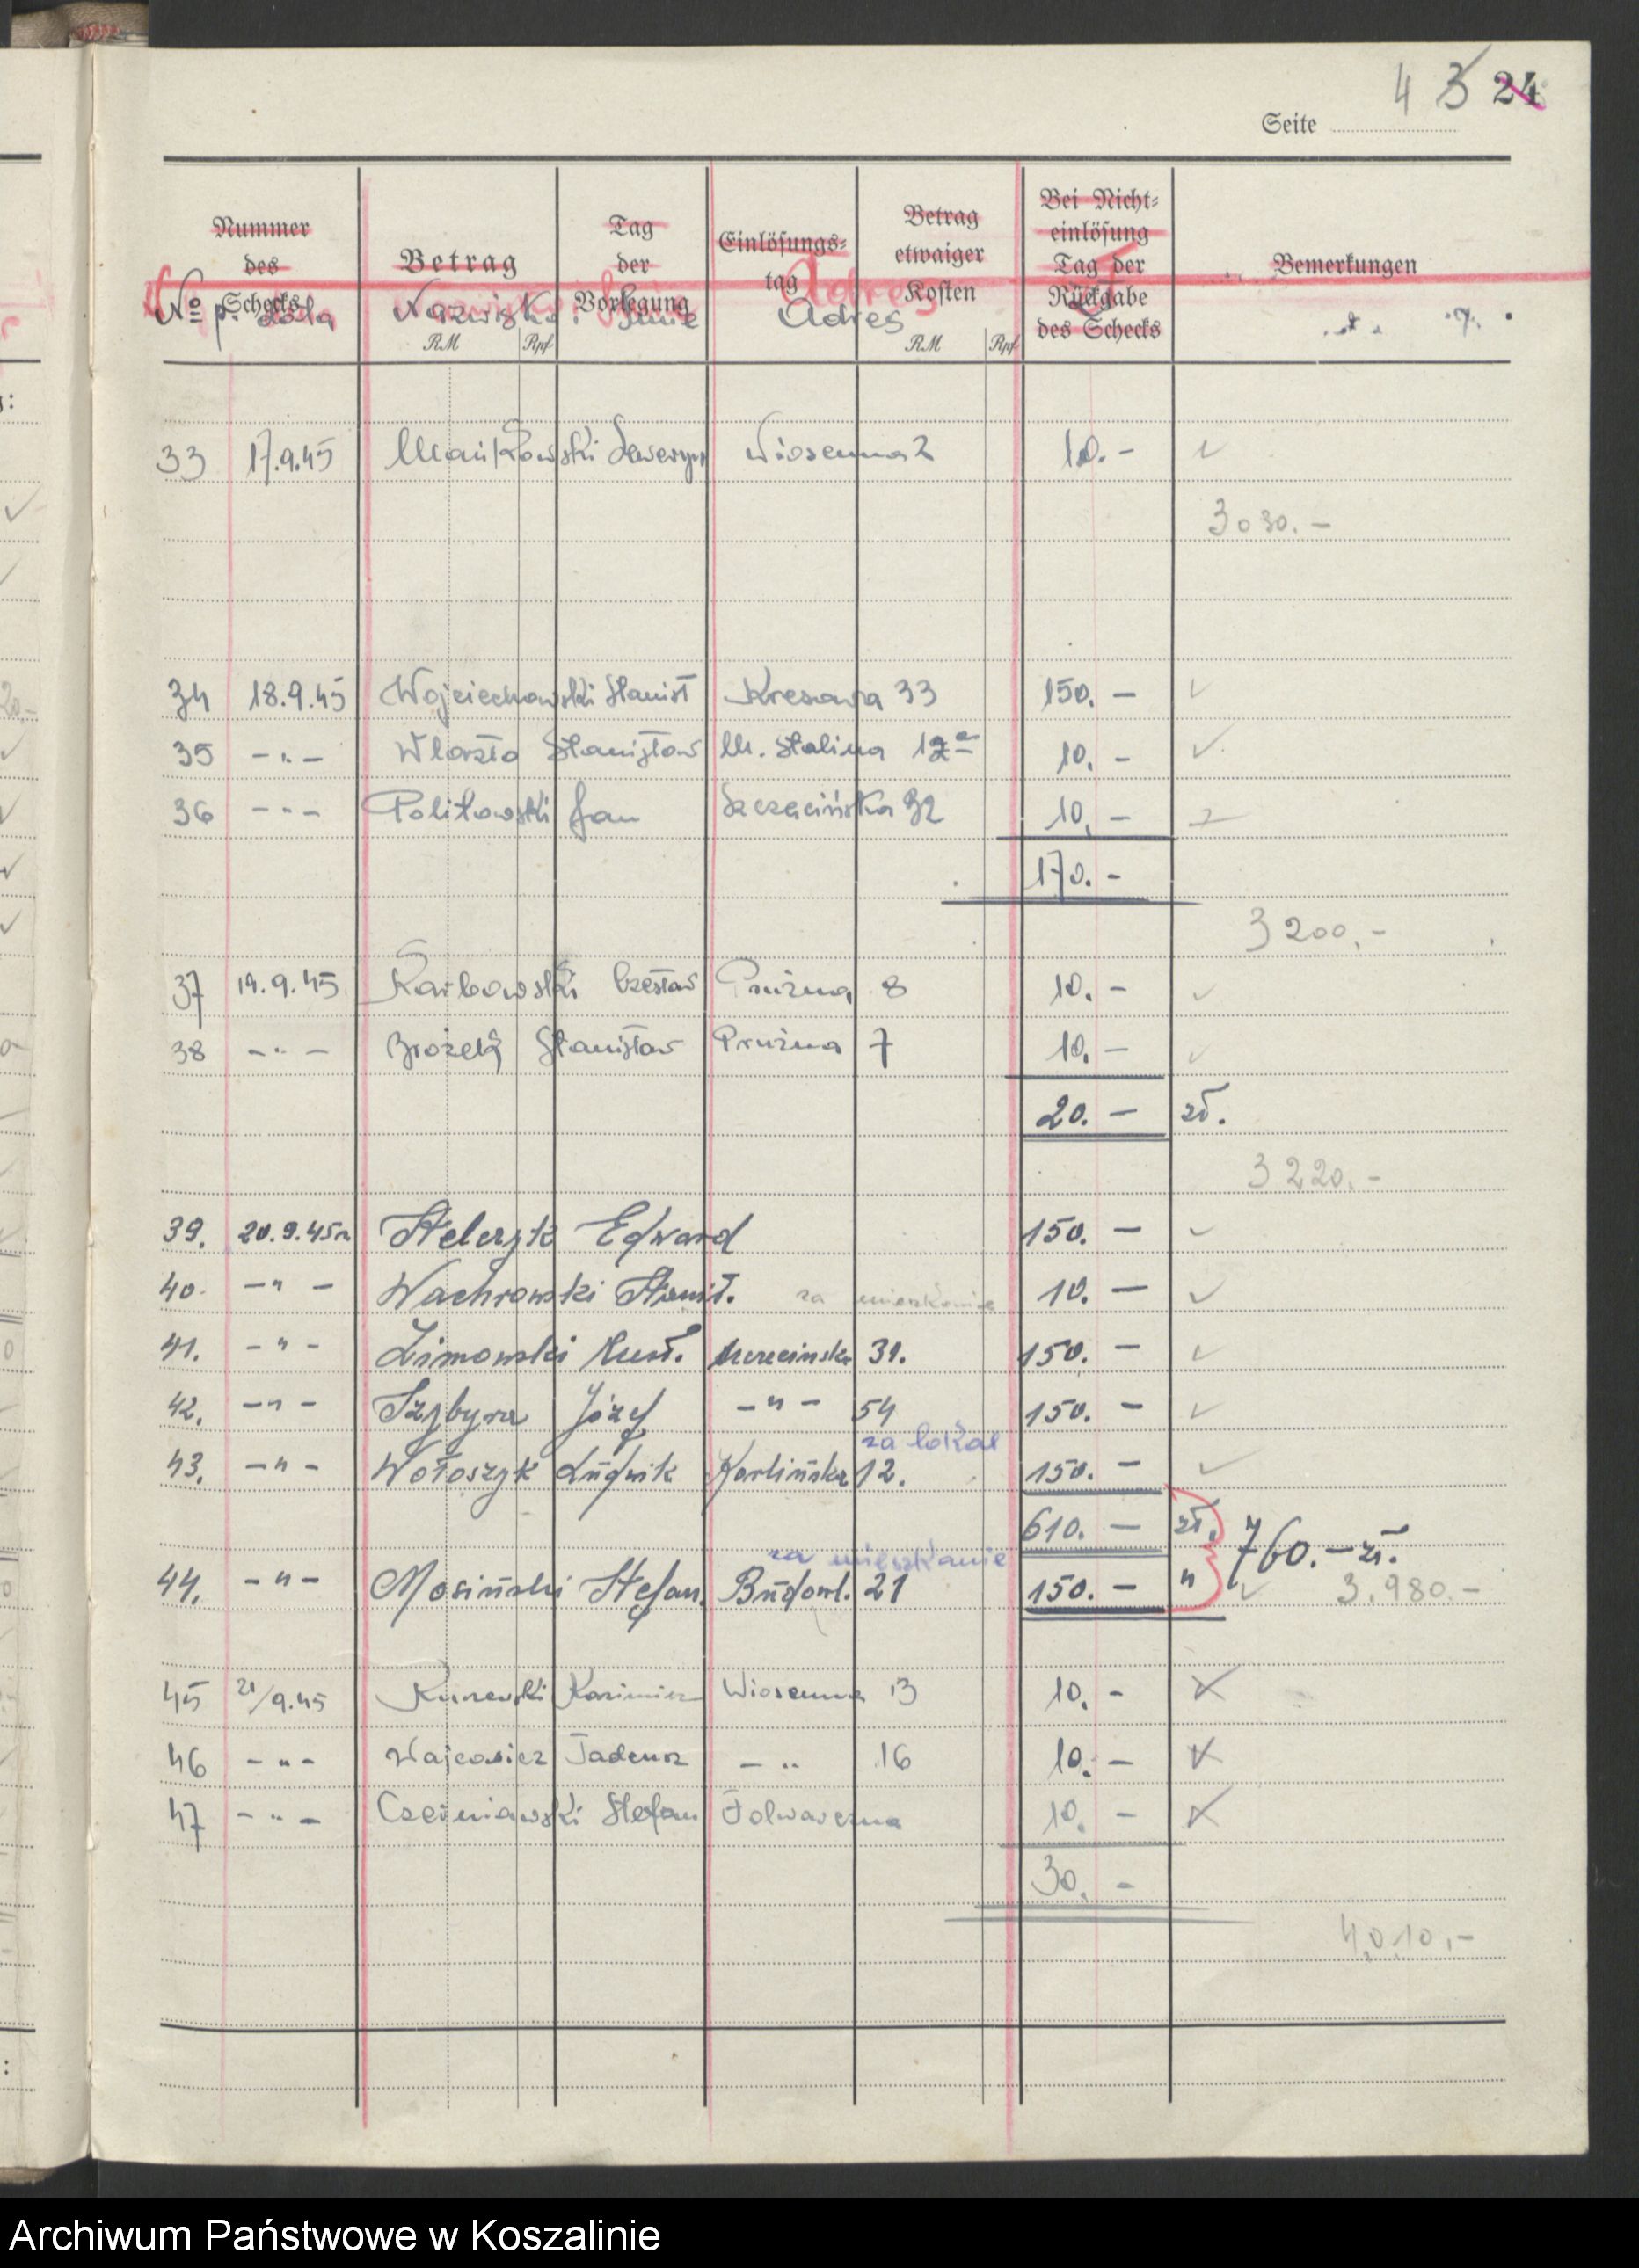 4 3 24
Seite
Nummer des Schecks
Betrag
RM Rpf
Tag der Vorlegung
Einlösungs-
tag
Betrag etwaiger Kosten
RM Rpf
Bei Nicht-
einlösung
Tag der
Rückgabe
des Schecks
Bemerkungen
№ p. data Nazwisko i Imię Adres
33 17.9.45 Mańkowski Seweryn Wiosenna 2 10.-
3030.-
34 18.9.45 Wojciechowski Stanisł Kresowa 33 150. -
35 - " - Wlazło Stanisław M. Stalina 12a 10. -
36 - " - Politowski Jan Szczecińska 32 10. -
170.-
3200.-
37 19.9.45 Karbowski Czesław Prużna 8 10. -
38 - " - Brożek Stanisław Prużna 7 10. -
20. - zł.
3220.-
39. 20.9.45r Stelczyk Edward 150. -
40. - " - Wachrowski Stanisł. za mieszkanie 10. -
41. - " - Zimowski 31. 150. -
42. - " - Józef - " - 54 150. -
za lokal
43. - " - Wołoszyk Ludwik Karlińska 12. 150. -
610. - zł. 760.- zł.
za mieszkanie
44. - " - Mosiński Stefan. Budowl. 21 150. - " 3.980.-
45 21/9.45 Kurewski Kazimierz Wiosenna 13 10. -
46 - " - Wajcowicz Tadeusz - " 16 10. -
47 - " - Cześniawski Stefan Folwarczna 10. -
30. -
4,010,-
Archiwum Państwowe w Koszalinie